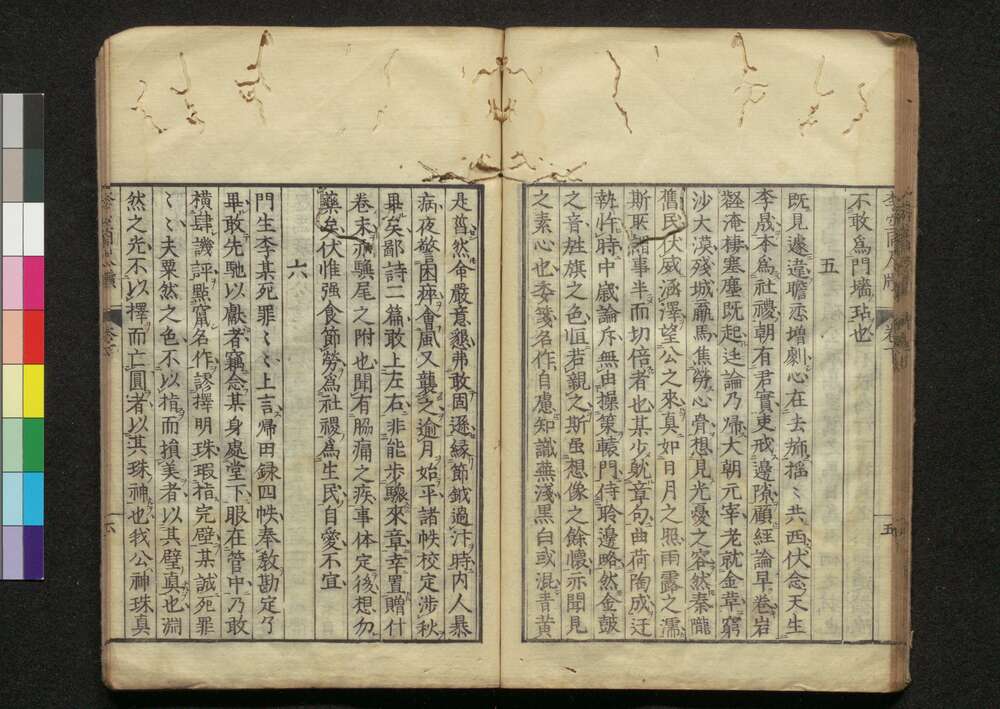 不敢爲門墻玷也
五
既見遽違瞻恋增劇心在去旆揺〻共西伏念天生
李晟本爲社禝朝有君實吏戒邊隙顧經論早卷岩
壑淹棲塞塵既起廷論乃帰大朝元宰老就金革窮
沙大漠殘城羸馬焦勞心膂想見光憂之容然秦隴
舊民伏威涵澤望公之來真如日月之照雨露之濡
斯眾事半而切倍者也某少躭章句曲荷陶成迂
執忤時中嵗論斥無由操策轅門侍聆邊略然金鼓
之音旌旗之色恒若親之斯虽想像之餘懷亦聞見
之素心也委箋名作自慮知識蕪淺黒白或混青黄
是舊然命嚴意懇弗敢固遜縁節鉞過汴時内人暴
病夜警困瘁會風又襲之逾月始平諸帙校定涉秋
畢矣鄙詩二篇敢上左右非能步驟來章幸置贈什
卷末亦驥尾之附也聞有脇痛之疾事体定後想勿
藥矣伏惟强食節勞爲社禝爲生民自愛不宜
六
門生李某死罪〻〻上言帰田録四帙奉教勘定了
畢敢先馳以獻者竊念某身處堂下眼在管中乃敢
横肆譏評點竄名作謬擇明珠瑕指完璧某誠死罪
〻〻夫粟然之色不以指而損美者以其璧真也淵
然之光不以擇而亡圓者以其珠神也我公神珠真